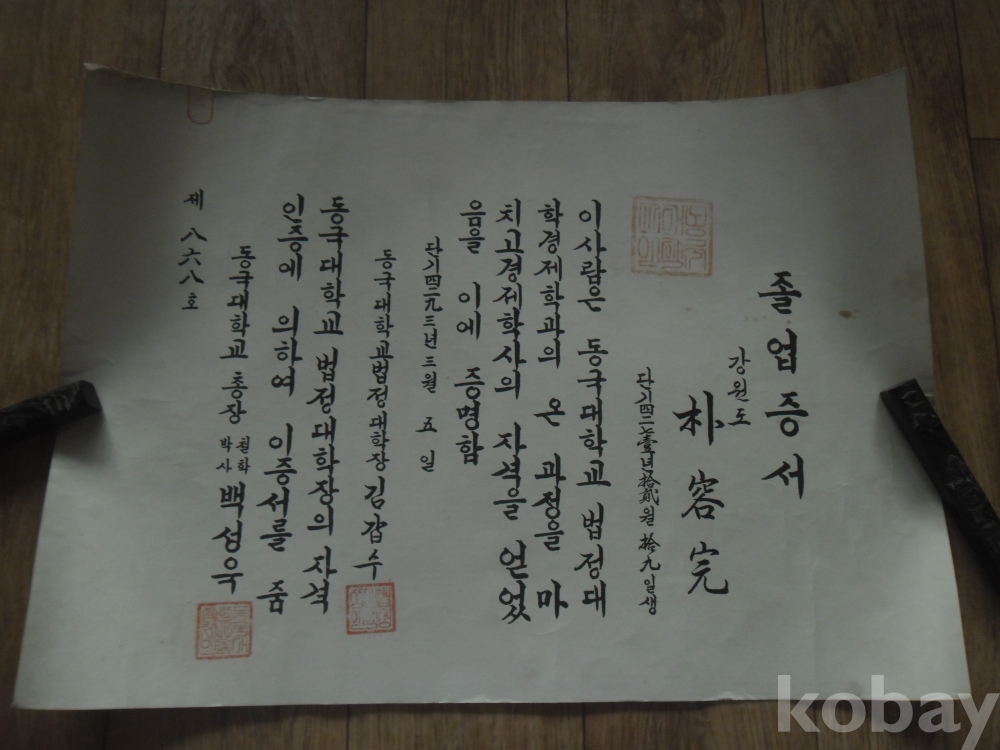 졸업증서
강원도
朴容完
단기四二七壹년拾貳월拾九일생
이사람은 동국대학교 법정대
학경제학과의 온 과정을 마
치고경제학사의 자격을 얻었
음을 이에 증명함
단기四二九三년三월 五일
동국대학교법정대학장 김갑수
동국대학교 법정대학장의 자격
인증에 의하여 이증서를 줌
동국대학교 총장 철학박사 백성욱
제 八六八호
kobay